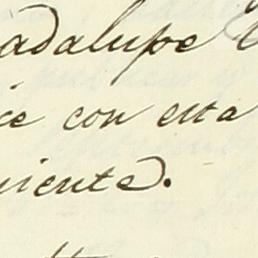 adalupe
ce con esta
niente.